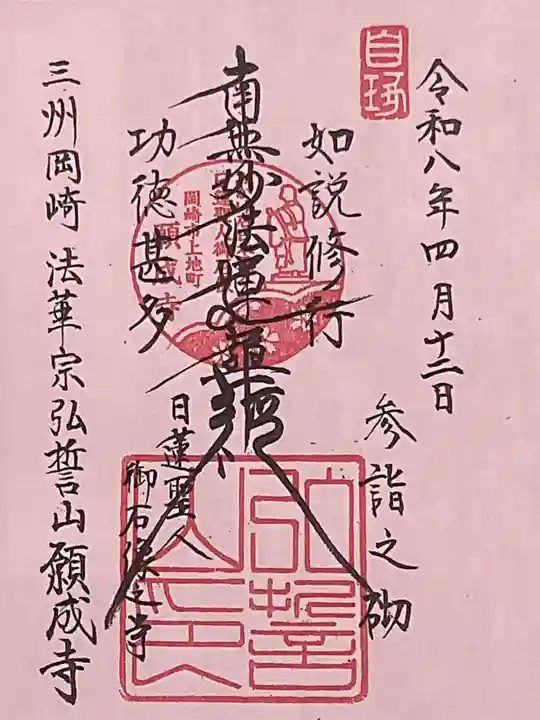 令和八年四月十二日
参詣之砌
如説修行
南無妙法蓮華経
功徳甚多
日蓮聖人
御石像之寺
三州岡崎 法華宗弘誓山願成寺
岡崎市上地町
願成寺
弘誓